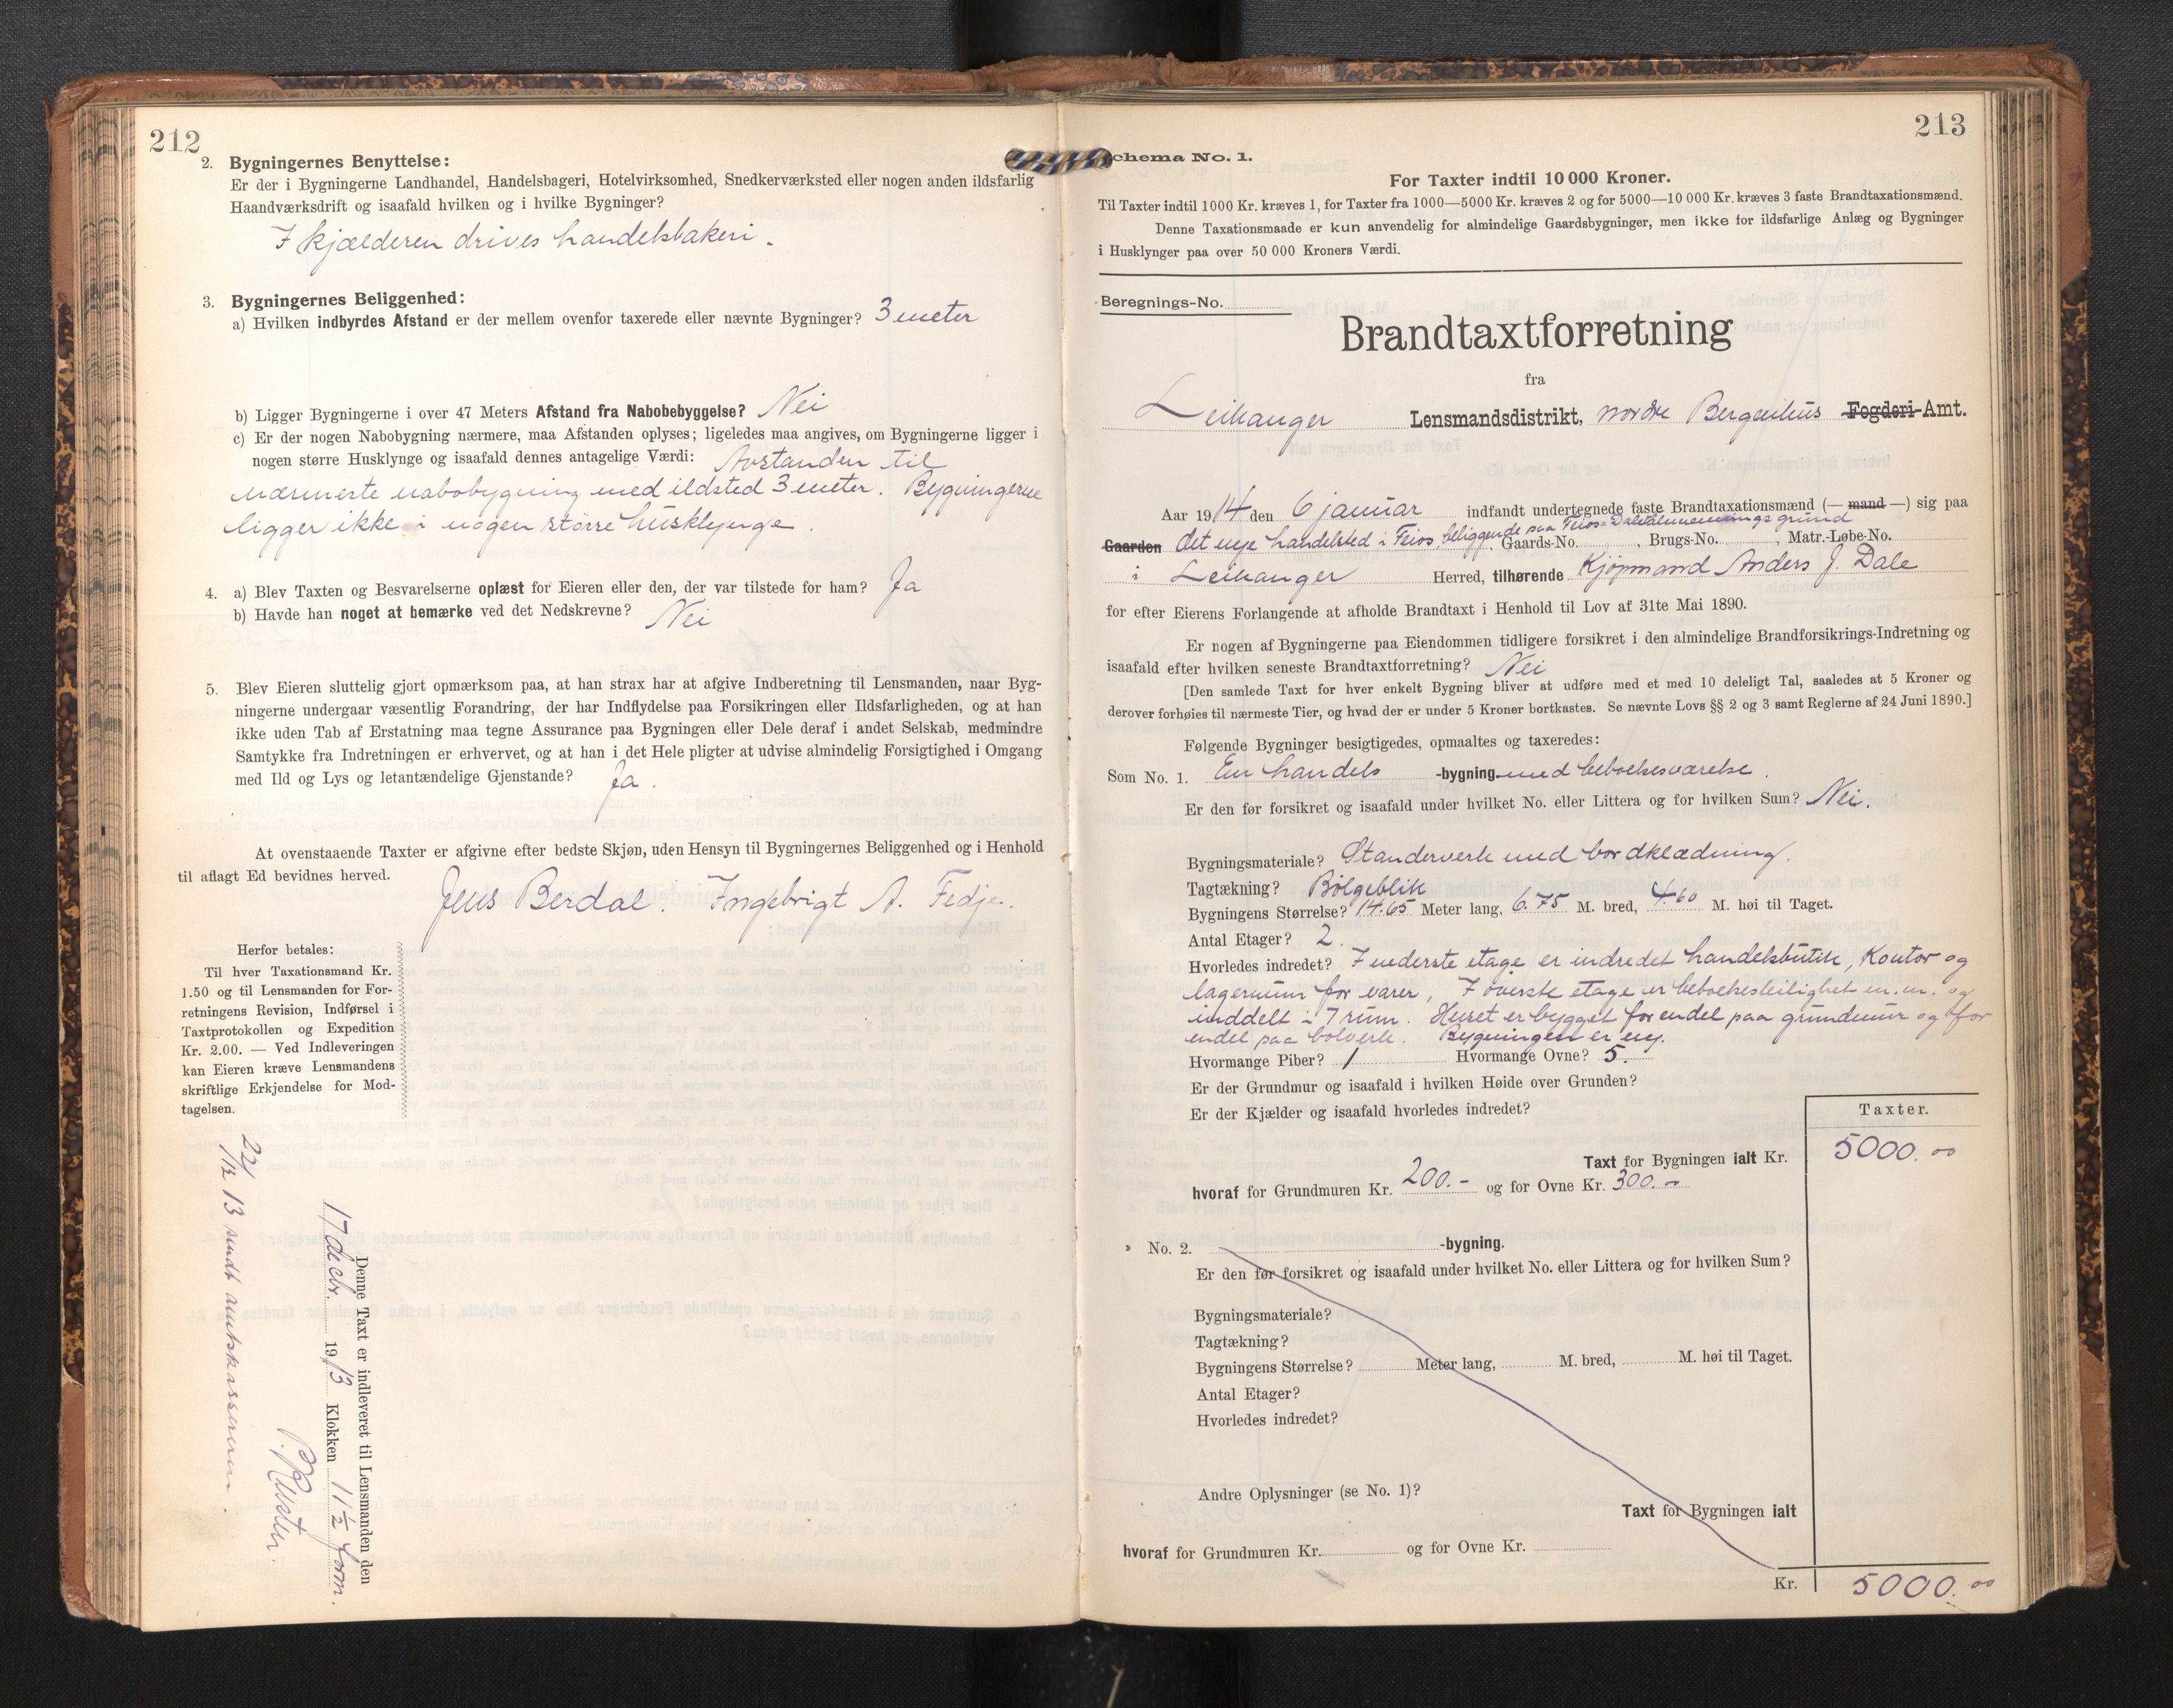 212
2. Bygningernes Benyttelse:
Er der i Bygningerne Landhandel, Handelsbageri, Hotelvirksomhed, Snedkerværksted eller nogen anden ildsfarlig
Haandværksdrift og isaafald hvilken og i hvilke Bygninger?
I kjælderen drives handelsbakeri.
3. Bygningernes Beliggenhed:
a) Hvilken indbyrdes Afstand er der mellem ovenfor taxerede eller nævnte Bygninger? 3 meter
b) Ligger Bygningerne i over 47 Meters Afstand fra Nabobebyggelse? Nei
c) Er der nogen Nabobygning nærmere, maa Afstanden oplyses; ligeledes maa angives, om Bygningerne ligger i
nogen større Husklynge og isaafald dennes antagelige Værdi: Avstanden til
nærmeste nabobygning med ildsted 3 meter. Bygningerne
ligger ikke i nogen større husklynge.
4. a) Blev Taxten og Besvarelserne oplæst for Eieren eller den, der var tilstede for ham? Ja
b) Havde han noget at bemærke ved det Nedskrevne? Nei
5. Blev Eieren sluttelig gjort opmærksom paa, at han strax har at afgive Indberetning til Lensmanden, naar Byg-
ningerne undergaar væsentlig Forandring, der har Indflydelse paa Forsikringen eller Ildsfarligheden, og at han
ikke uden Tab af Erstatning maa tegne Assurance paa Bygningen eller Dele deraf i andet Selskab, medmindre
Samtykke fra Indretningen er erhvervet, og at han i det Hele pligter at udvise almindelig Forsigtighed i Omgang
med Ild og Lys og letantændelige Gjenstande? Ja.
At ovenstaaende Taxter er afgivne efter bedste Skjøn, uden Hensyn til Bygningernes Beliggenhed og i Henhold
til aflagt Ed bevidnes herved.
Jens Berdal. Ingebrigt A. Fedje.
Herfor betales:
Til hver Taxationsmand Kr.
1.50 og til Lensmanden for For-
retningens Revision, Indførsel i
Taxtprotokollen og Expedition
Kr. 2.00. — Ved Indleveringen
kan Eieren kræve Lensmandens
skriftlige Erkjendelse for Mod-
tagelsen.
Denne Taxt er indleveret til Lensmanden den
17 decbr. 1913 Klokken 11½ form.
22/12 13 sendt amtskassereren.
213
Schema No. 1.
For Taxter indtil 10 000 Kroner.
Til Taxter indtil 1000 Kr. kræves 1, for Taxter fra 1000—5000 Kr. kræves 2 og for 5000—10 000 Kr. kræves 3 faste Brandtaxationsmænd.
Denne Taxationsmaade er kun anvendelig for almindelige Gaardsbygninger, men ikke for ildsfarlige Anlæg og Bygninger
i Husklynger paa over 50 000 Kroners Værdi.
Beregnings-No.
Brandtaxtforretning
fra
Leikanger Lensmandsdistrikt, nordre Bergenhus Fogderi-Amt.
Aar 1914 den 6 januar indfandt undertegnede faste Brandtaxationsmænd (— mand —) sig paa
Gaarden det nye handelsted i Feios, beliggende paa Feios-Dalealmennings grund Gaards-No. , Brugs-No. , Matr.-Løbe-No.
i Leikanger Herred, tilhørende Kjøpmand Anders J. Dale
for efter Eierens Forlangende at afholde Brandtaxt i Henhold til Lov af 31te Mai 1890.
Er nogen af Bygningerne paa Eiendommen tidligere forsikret i den almindelige Brandforsikrings-Indretning og
isaafald efter hvilken seneste Brandtaxtforretning? Nei
[Den samlede Taxt for hver enkelt Bygning bliver at udføre med et med 10 deleligt Tal, saaledes at 5 Kroner og
derover forhøies til nærmeste Tier, og hvad der er under 5 Kroner bortkastes. Se nævnte Lovs §§ 2 og 3 samt Reglerne af 24 Juni 1890.]
Følgende Bygninger besigtigedes, opmaaltes og taxeredes:
Som No. 1. En handels -bygning med beboelsesværelse.
Er den før forsikret og isaafald under hvilket No. eller Littera og for hvilken Sum? Nei.
Bygningsmateriale? Standerverk med bordklædning.
Tagtækning? Bølgeblik
Bygningens Størrelse? 14.65 Meter lang, 6.75 M. bred, 4.60 M. høi til Taget.
Antal Etager? 2.
Hvorledes indredet? I nederste etage er indredet handelsbutik, Kontor og
lagerrum for varer, I øverste etage er beboelsesleilighet m.m. og
inddelt i 7 rum. Huset er bygget for endel paa grundmur og for
endel paa bolverk. Bygningen er ny.
Hvormange Piber? 1 Hvormange Ovne? 5.
Er der Grundmur og isaafald i hvilken Høide over Grunden?
Er der Kjælder og isaafald hvorledes indredet?
Taxter.
Taxt for Bygningen ialt Kr. 5000.00
hvoraf for Grundmuren Kr. 200.- og for Ovne Kr. 300.-
» No. 2. -bygning.
Er den før forsikret og isaafald under hvilket No. eller Littera og for hvilken Sum?
Bygningsmateriale?
Tagtækning?
Bygningens Størrelse? Meter lang, M. bred, M. høi til Taget.
Antal Etager?
Hvorledes indredet?
Andre Oplysninger (se No. 1)?
Taxt for Bygningen ialt
hvoraf for Grundmuren Kr. og for Ovne Kr.
Kr. 5000.00